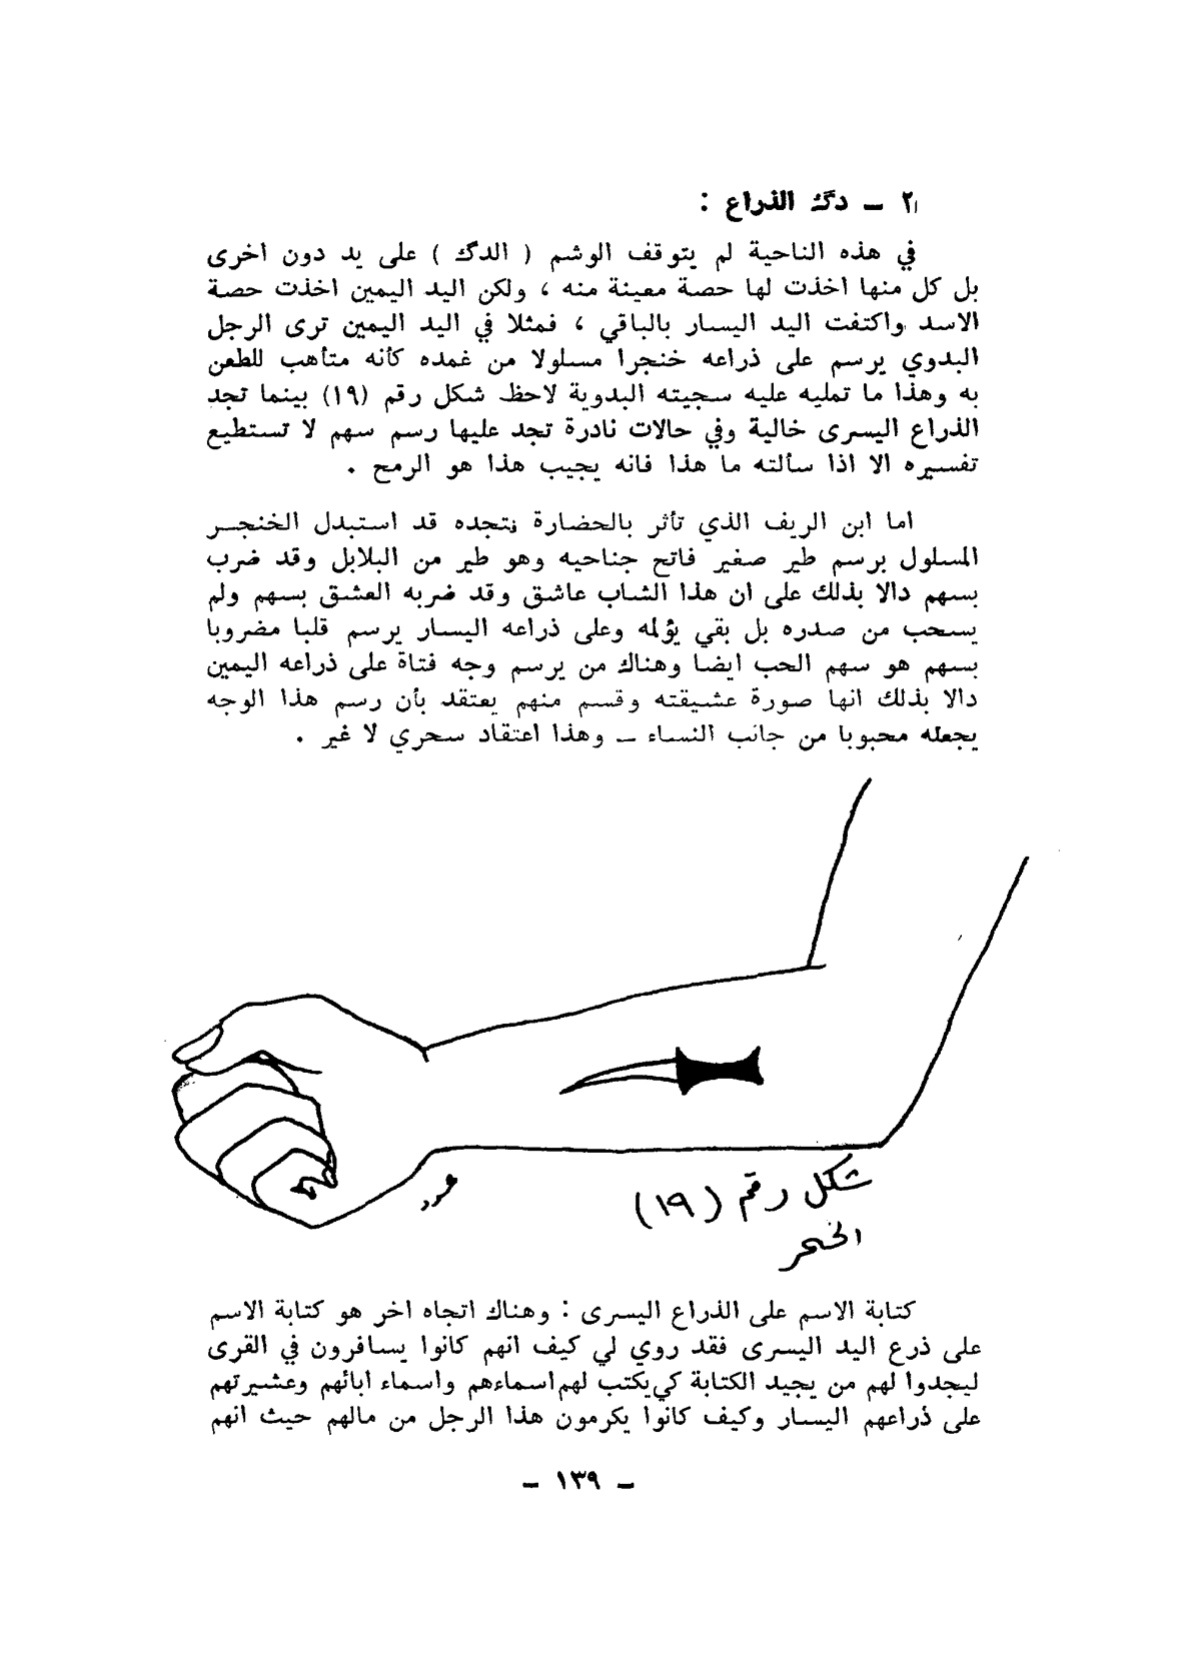 ٢ ــ دگ الذراع :
في هذه الناحية لم يتوقف الوشم ( الدگ ) على يد دون اخرى
بل كل منها اخذت لها حصة معينة منه ، ولكن اليد اليمين اخذت حصة
الاسد واكتفت اليد اليسار بالباقي ، فمثلا في اليد اليمين ترى الرجل
البدوي يرسم على ذراعه خنجرا مسلولا من غمده كأنه متأهب للطعن
به وهذا ما تمليه عليه سجيته البدوية لاحظ شكل رقم (١٩) بينما تجد
الذراع اليسرى خالية وفي حالات نادرة تجد عليها رسم سهم لا تستطيع
تفسيره الا اذا سألته ما هذا فانه يجيب هذا هو الرمح .
اما ابن الريف الذي تأثر بالحضارة فتجده قد استبدل الخنجر
المسلول برسم طير صغير فاتح جناحيه وهو طير من البلابل وقد ضرب
بسهم دالا بذلك على ان هذا الشاب عاشق وقد ضربه العشق بسهم ولم
يسحب من صدره بل بقي يؤلمه وعلى ذراعه اليسار يرسم قلبا مضروبا
بسهم هو سهم الحب ايضا وهناك من يرسم وجه فتاة على ذراعه اليمين
دالا بذلك انها صورة عشيقته وقسم منهم يعتقد بأن رسم هذا الوجه
يجعله محبوبا من جانب النساء ــ وهذا اعتقاد سحري لا غير .
شكل رقم (١٩)
الخنجر
كتابة الاسم على الذراع اليسرى : وهناك اتجاه اخر هو كتابة الاسم
على ذرع اليد اليسرى فقد روي لي كيف انهم كانوا يسافرون في القرى
ليجدوا لهم من يجيد الكتابة كي يكتب لهم اسماءهم واسماء ابائهم وعشيرتهم
على ذراعهم اليسار وكيف كانوا يكرمون هذا الرجل من مالهم حيث انهم
ــ ١٣٩ ــ